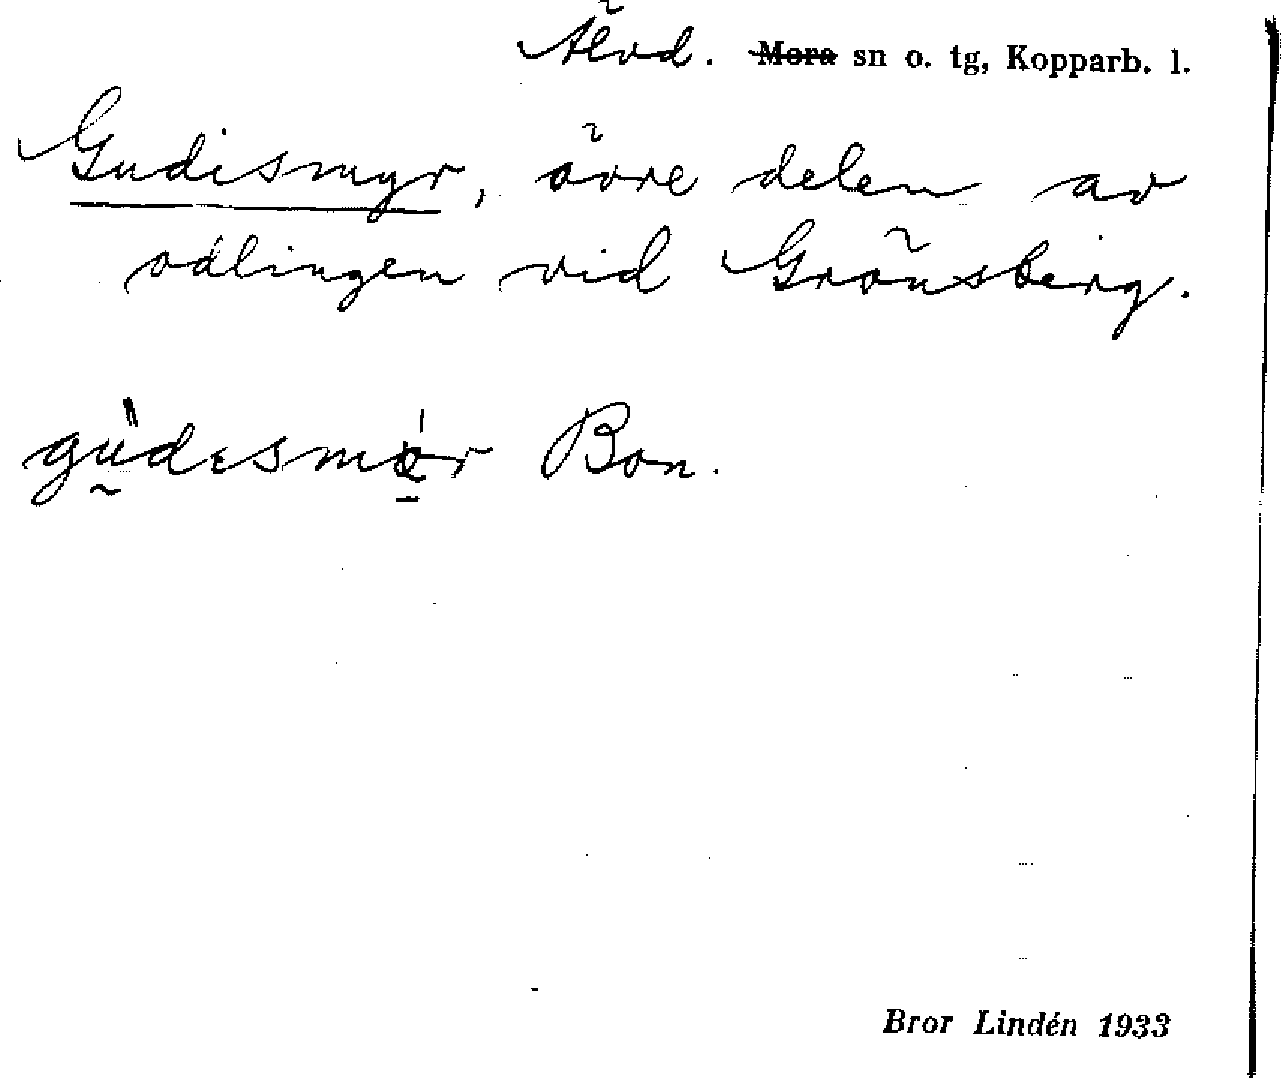 Älvd. Mora sn o. tg, Kopparb. l.
Gudismyr, övre delen av
odlingen vid Grönsberg.
Bon.
Bror Lindén 1933